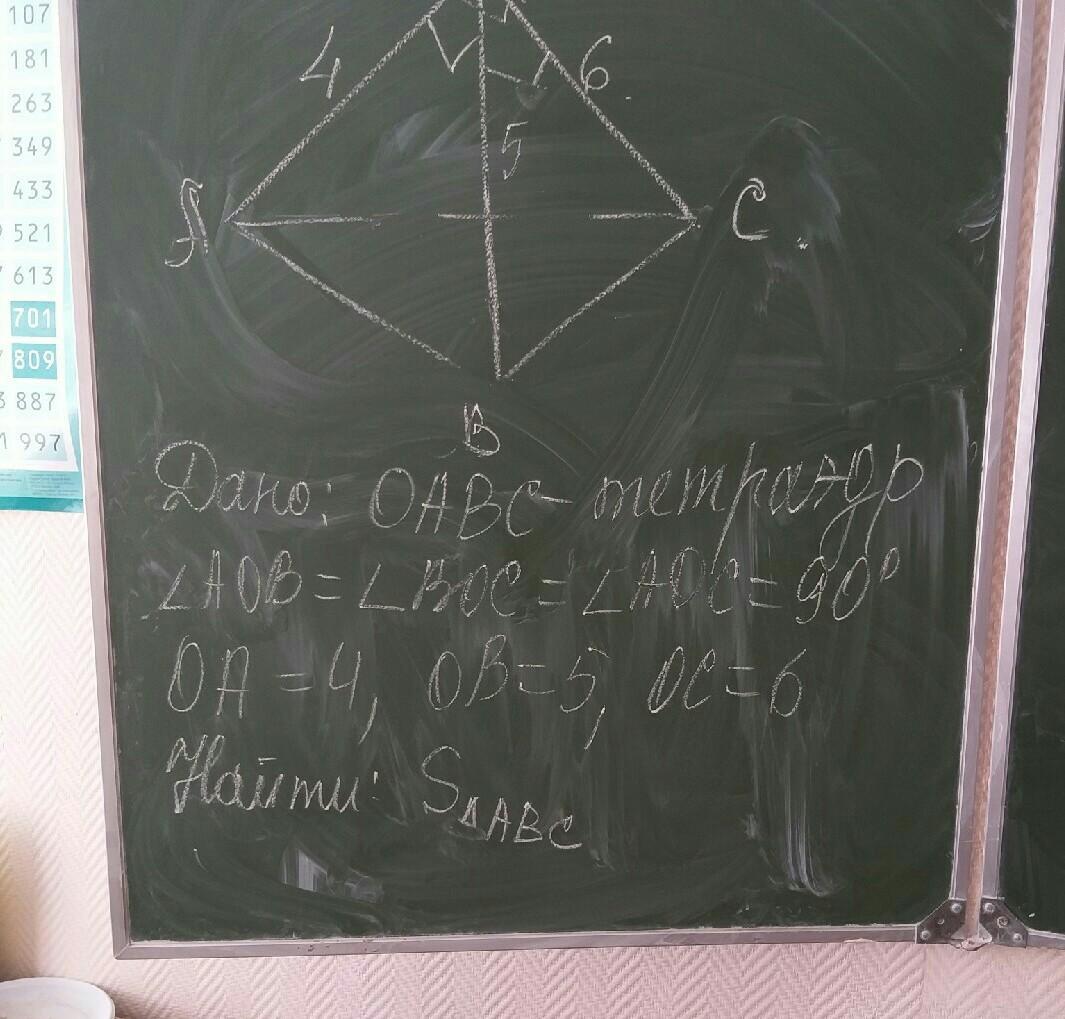 107
181
263
349
433
521
613
701
809
887
997
4
6
5
A
C
B
Дано: OABC - тетраэдр
∠AOB = ∠BOC = ∠AOC = 90°
OA = 4, OB = 5, OC = 6
Найти: S△ABC